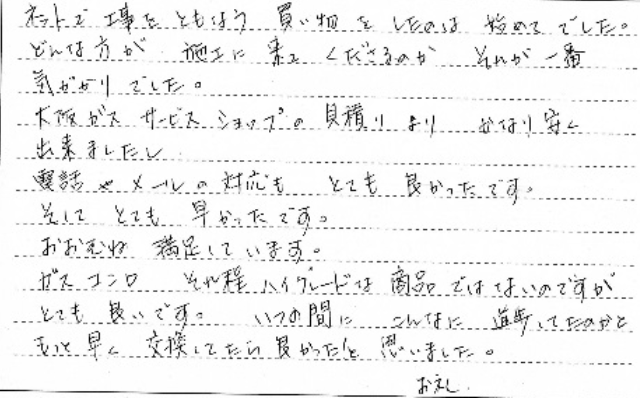 ネットで 工事を ともなう 買い物 を したのは 始めて でした。
どんな方が 施工に 来て くださるのか それが 一番
気がかり でした。
大阪ガス サービス ショップの 見積り より かなり 安く
出来ましたし
電話 や メール の 対応も とても 良かった です。
そして とても 早かった です。
おおむね 満足しています。
ガス コンロ それ程 ハイグレードな 商品 ではないのですが
とても 良い です。 いつの間に こんなに 進歩してたのかと
もっと 早く 交換してたら 良かったと 思いました。